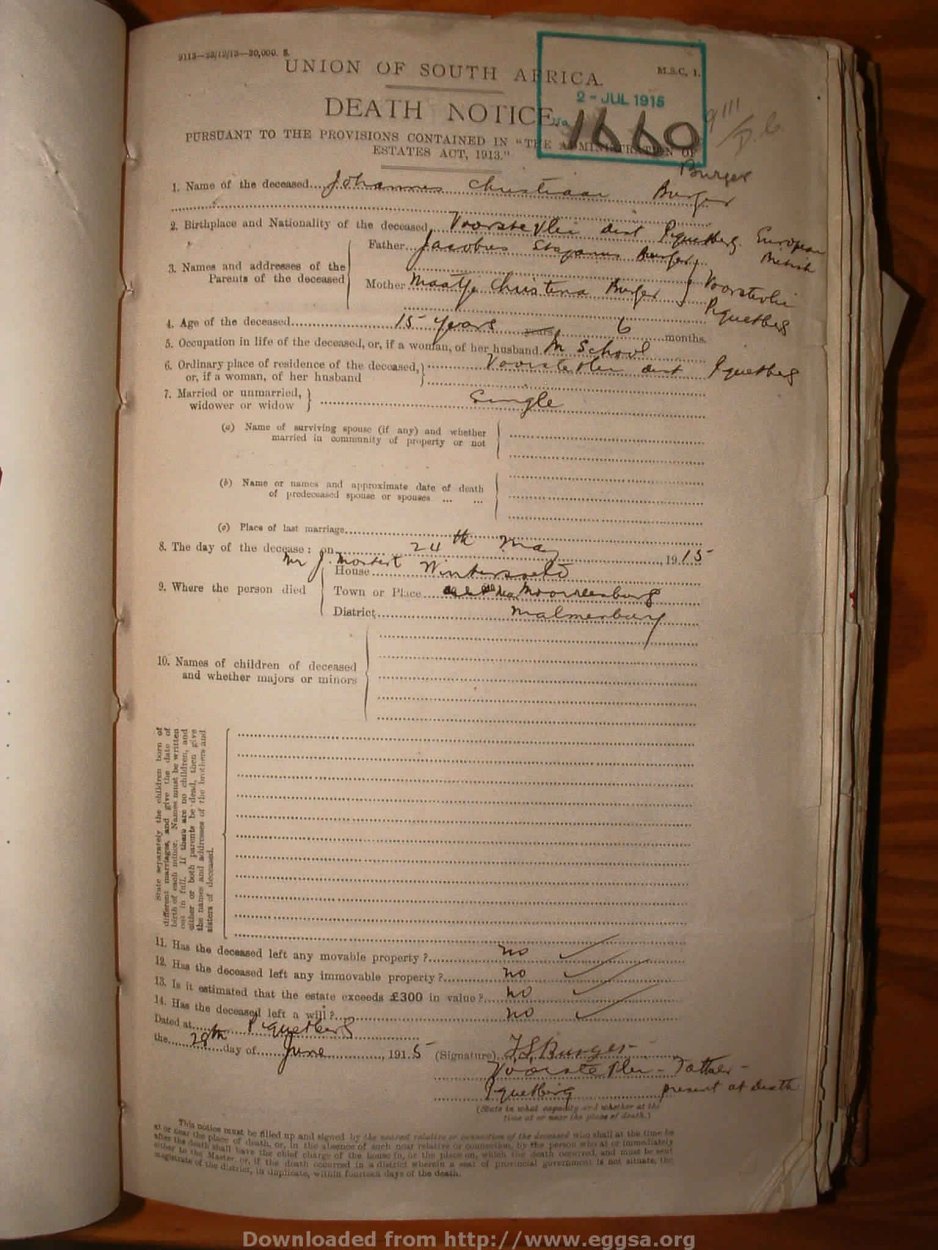 9113—23/12/13—20,000. S.
M.S.C. 1.
UNION OF SOUTH AFRICA.
2 - JUL 1915
DEATH NOTICE.
No. 1660
PURSUANT TO THE PROVISIONS CONTAINED IN "THE ADMINISTRATION OF
ESTATES ACT, 1913."
Burger
1. Name of the deceased Johannes Christiaan Burger
2. Birthplace and Nationality of the deceased Voorste Vlei dist Piquetberg European
British
3. Names and addresses of the Parents of the deceased
Father Jacobus Burger
Mother Maatje Christina Burger Voorstevlei
Piquetberg
4. Age of the deceased 15 years years, 6 months.
5. Occupation in life of the deceased, or, if a woman, of her husband In School
6. Ordinary place of residence of the deceased, Voorste Vlei dist Piquetberg
or, if a woman, of her husband
7. Married or unmarried, widower or widow Single
(a) Name of surviving spouse (if any) and whether
married in community of property or not
(b) Name or names and approximate date of death
of predeceased spouse or spouses ... ...
(c) Place of last marriage
8. The day of the decease: on 24th May 1915
9. Where the person died
Mr J. Mostert
House Winterveld
Town or Place Moorreesburg
District Malmesbury
10. Names of children of deceased
and whether majors or minors
State separately the children born of
different marriages, and give the date of
birth of each minor. Names must be written
out in full. If there are no children, and
either or both parents be dead, then give
the names and addresses of the brothers and
sisters of deceased.
11. Has the deceased left any movable property? no
12. Has the deceased left any immovable property? no
13. Is it estimated that the estate exceeds £300 in value? no
14. Has the deceased left a will? no
Dated at Piquetberg
the 29th day of June 1915 (Signature) J S Burger
Voorste Vlei - Father -
Piquetberg present at death
(State in what capacity and whether at the
time at or near the place of death.)
This notice must be filled up and signed by the nearest relative or connection of the deceased who shall at the time be
at or near the place of death, or, in the absence of such near relative or connection, by the person who at or immediately
after the death shall have the chief charge of the house in, or the place on, which the death occurred, and must be sent
either to the Master, or, if the death occurred in a district wherein a seat of provincial government is not situate, the
magistrate of the district, in duplicate, within fourteen days of the death.
Downloaded from http://www.eggsa.org